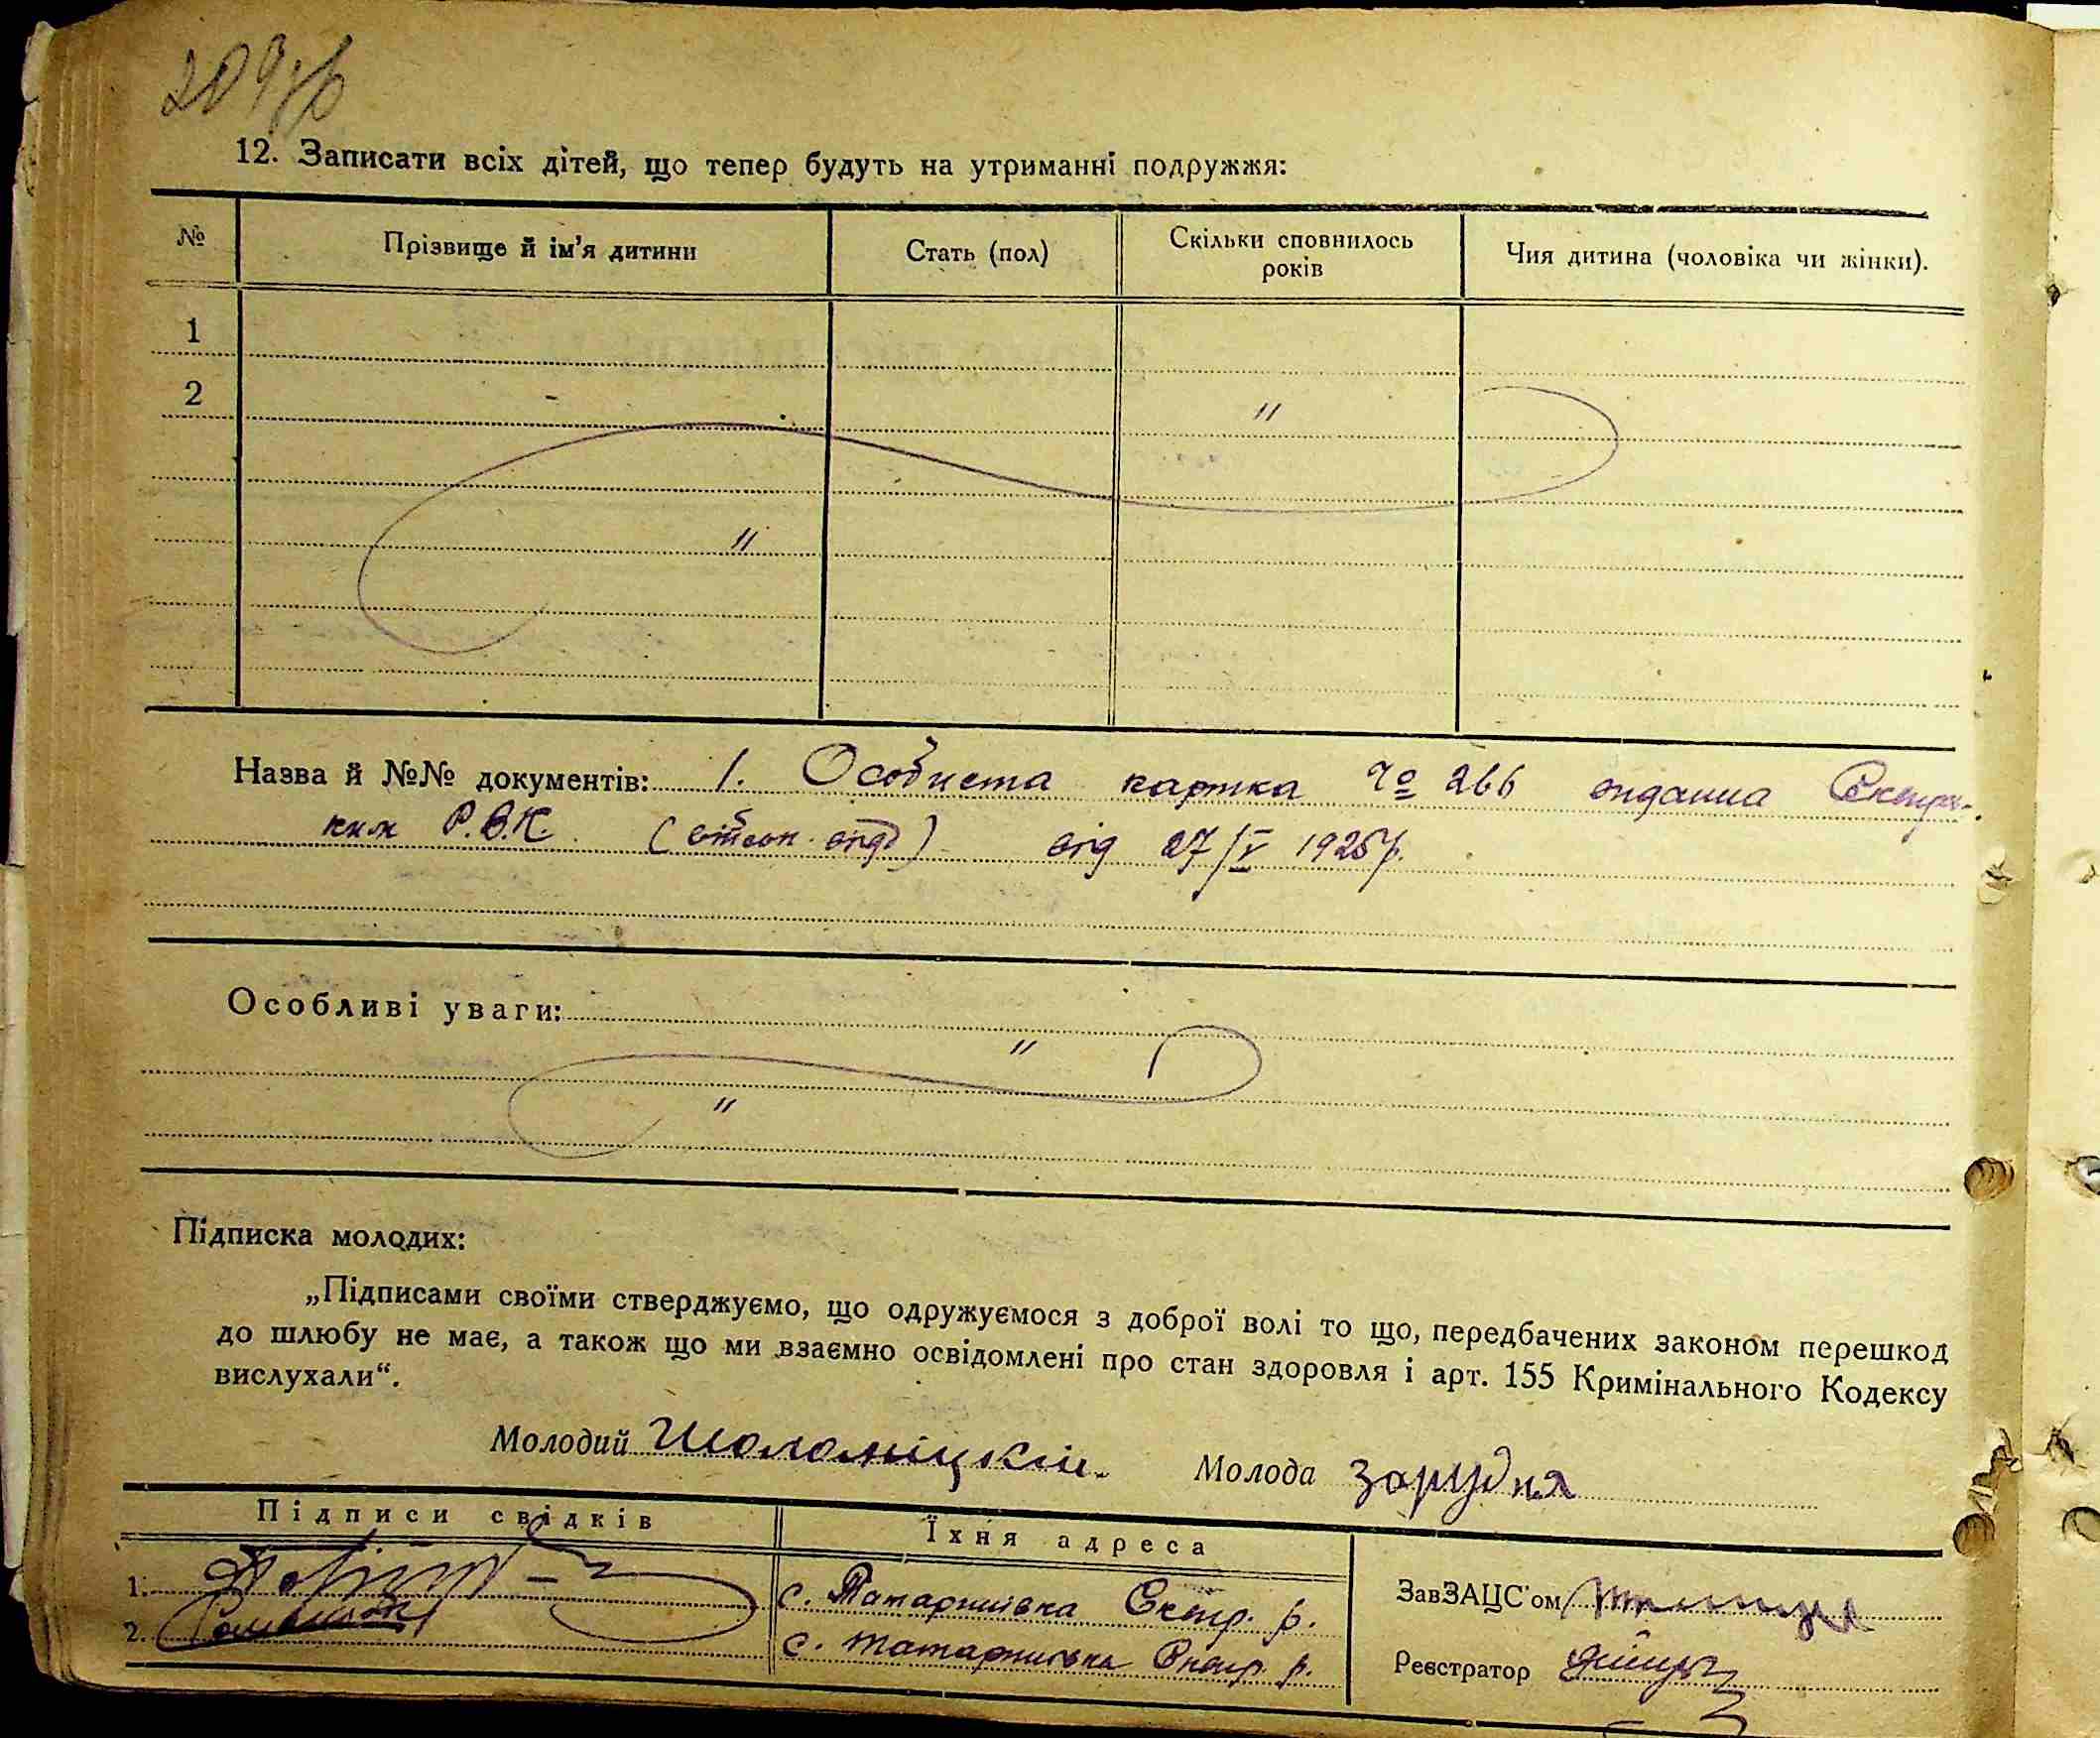 209зв
12. Записати всіх дітей, що тепер будуть на утриманні подружжя:
№ Прізвище й ім’я дитини Стать (пол) Скільки сповнилось років Чия дитина (чоловіка чи жінки).
1
2 - "
"
Назва й №№ документів: 1. Особиста картка № 266 видана
ким Р.В.К. від 27/V 1925р.
Особливі уваги:
"
"
Підписка молодих:
„Підписами своїми стверджуємо, що одружуємося з доброї волі то що, передбачених законом перешкод
до шлюбу не має, а також що ми взаємно освідомлені про стан здоровля і арт. 155 Кримінального Кодексу
вислухали“.
Молодий Шоломіцкій. Молода Зарудня
Підписи свідків Їхня адреса
1. с. Татарнивка р. ЗавЗАЦС’ом
2. с. Татарнивка р. Реєстратор